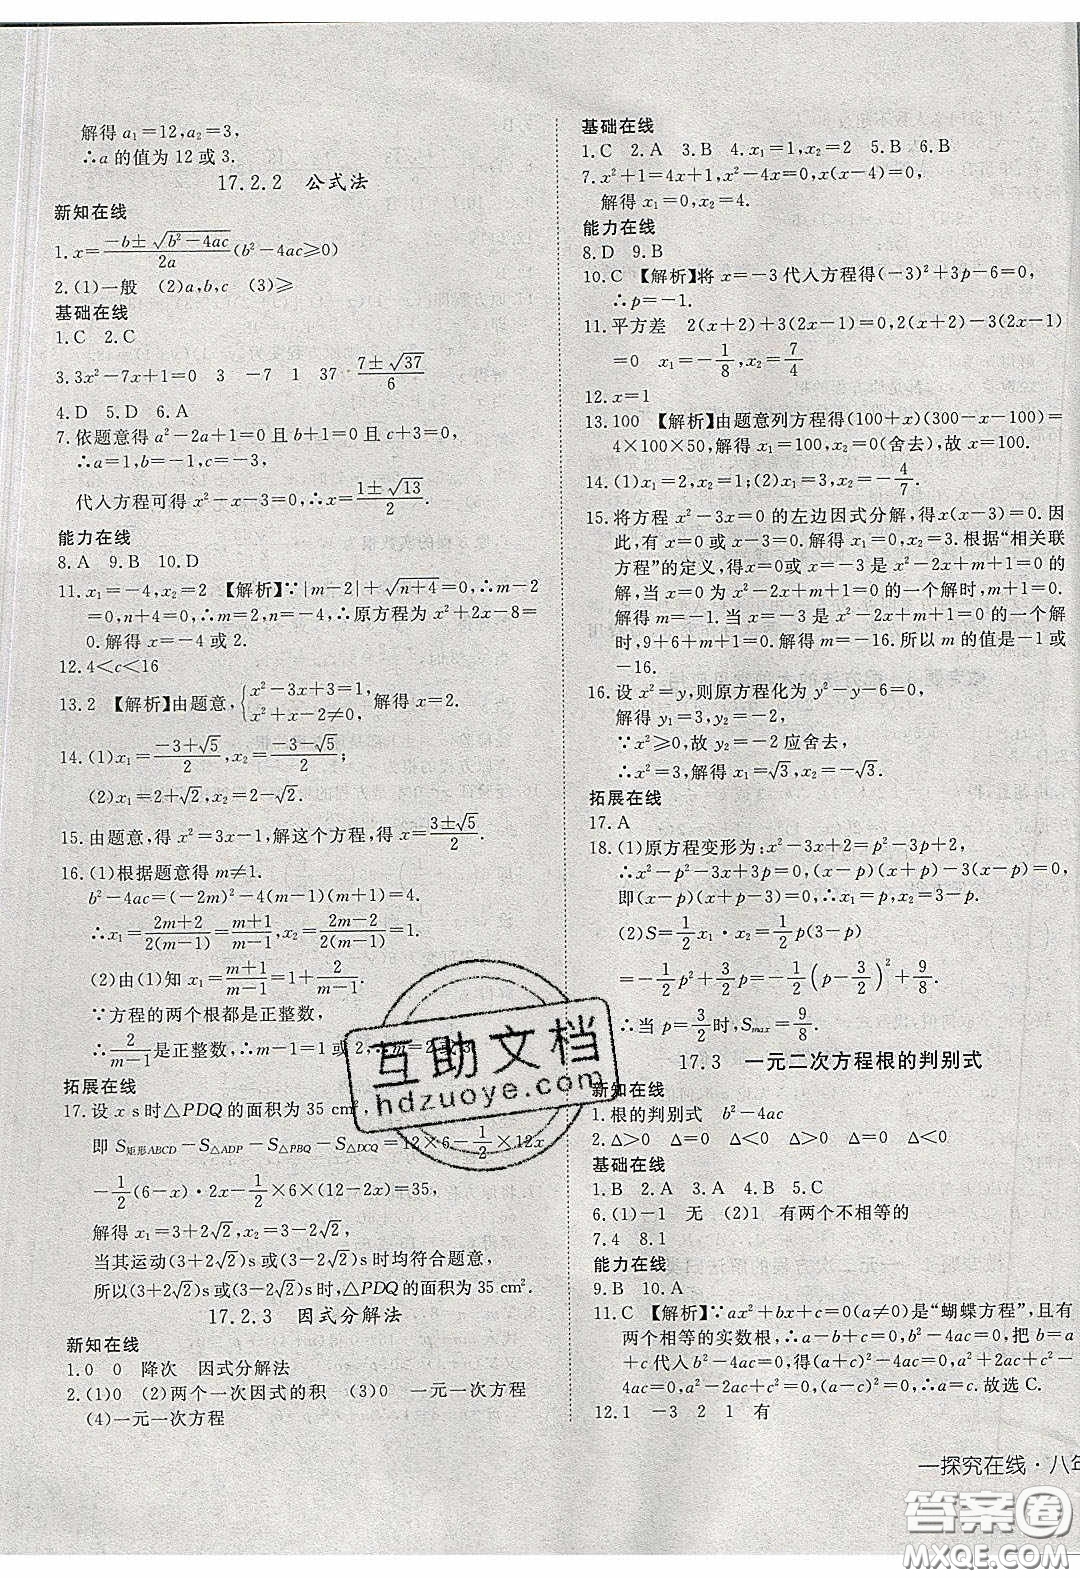 解得 a₁=12,a₂=3,
∴a 的值为 12 或 3.
17.2.2 公式法
新知在线
1.x=(-b±√(b²-4ac))/2a(b²-4ac≥0)
2.(1)一般 (2)a,b,c (3)≥
基础在线
1.C 2.C
3.3x²-7x+1=0 3 -7 1 37 (7±√37)/6
4.D 5.D 6.A
7.依题意得 a²-2a+1=0 且 b+1=0 且 c+3=0,
∴a=1,b=-1,c=-3,
代入方程可得 x²-x-3=0,∴x=(1±√13)/2.
能力在线
8.A 9.B 10.D
11.x₁=-4,x₂=2 【解析】∵|m-2|+√(n+4)=0,∴m-2
=0,n+4=0,∴m=2,n=-4,∴原方程为 x²+2x-8=
0.解得 x=-4 或 2.
12.4<c<16
13.2 【解析】由题意,{x²-3x+3=1, x²+x-2≠0, 解得 x=2.
14.(1)x₁=(-3+√5)/2,x₂=(-3-√5)/2;
(2)x₁=2+√2,x₂=2-√2.
15.由题意,得 x²=3x-1,解这个方程,得 x=(3±√5)/2.
16.(1)根据题意得 m≠1.
b²-4ac=(-2m)²-4(m-1)(m+1)=4.
∴x₁=(2m+2)/2(m-1)=(m+1)/(m-1),x₂=(2m-2)/2(m-1)=1.
(2)由(1)知 x₁=(m+1)/(m-1)=1+2/(m-1).
∵方程的两个根都是正整数,
∴2/(m-1)是正整数,∴m-1=1 或 2,∴m=2 或 3.
拓展在线
17.设 x s 时△PDQ 的面积为 35 cm²,
即 S矩形ABCD-S△ADP-S△PBQ-S△DCQ=12×6-1/2×12x
-1/2(6-x)·2x-1/2×6×(12-2x)=35,
解得 x₁=3+2√2,x₂=3-2√2.
当其运动(3+2√2)s 或(3-2√2)s 时均符合题意,
所以(3+2√2)s 或(3-2√2)s 时,△PDQ 的面积为 35 cm².
17.2.3 因式分解法
新知在线
1.0 0 降次 因式分解法
2.(1)0 (2)两个一次因式的积 (3)0 一元一次方程
(4)一元一次方程
基础在线
1.C 2.A 3.B 4.x₁=1,x₂=2 5.B 6.B
7.x²+1=4x+1,x²-4x=0,x(x-4)=0,
解得 x₁=0,x₂=4.
能力在线
8.D 9.B
10.C 【解析】将 x=-3 代入方程得(-3)²+3p-6=0,
∴p=-1.
11.平方差 2(x+2)+3(2x-1)=0,2(x+2)-3(2x-1)
=0 x₁=-1/8,x₂=7/4
12.x=1
13.100 【解析】由题意列方程得(100+x)(300-x-100)=
4×100×50,解得 x₁=100,x₂=0(舍去),故 x=100.
14.(1)x₁=2,x₂=1;(2)x₁=3,x₂=-4/7.
15.将方程 x²-3x=0 的左边因式分解,得x(x-3)=0.因
此,有 x=0 或 x-3=0.解得 x₁=0,x₂=3.根据“相关联
方程”的定义,得 x=0或 x=-3 是 x²-2x+m+1=0 的
解,当 x=0 为 x²-2x+m+1=0 的一个解时,m+1=0.
解得 m=-1.当 x=-3 是 x²-2x+m+1=0 的一个解
时,9+6+m+1=0.解得 m=-16.所以 m 的值是-1 或
-16.
16.设 x²=y,则原方程化为 y²-y-6=0,
解得 y₁=3,y₂=-2,
∵x²≥0,故 y=-2 应舍去,
∴x²=3,解得 x₁=√3,x₂=-√3.
拓展在线
17.A
18.(1)原方程变形为:x²-3x+2=p²-3p+2,
∴x²-p²-3x+3p=0,(x+p)(x-p)-3(x-p)=0,
即(x-p)(x+p-3)=0,∴x₁=p,x₂=3-p.
(2)S=1/2x₁·x₂=1/2p(3-p)
=-1/2p²+3/2p=-1/2(p-3/2)²+9/8.
∴当 p=3/2时,Smax=9/8.
17.3 一元二次方程根的判别式
新知在线
1.根的判别式 b²-4ac
2.Δ>0 Δ=0 Δ<0 Δ>0 Δ=0 Δ<0
基础在线
1.B 2.A 3.A 4.B 5.C
6.(1)-1 无 (2)1 有两个不相等的
7.4 8.1
能力在线
9.B 10.A
11.C 【解析】∵ax²+bx+c=0(a≠0)是“蝴蝶方程”,且有
两个相等的实数根,∴a-b+c=0,b²-4ac=0,把 b=a
+c 代入 b²-4ac=0,得(a+c)²-4ac=0,a²+2ac+
c²-4ac=a²-2ac+c²=(a-c)²=0,∴a=c.故选 C.
12.1 -3 2 1 有
一探究在线·八年
互助文档
hdzuoye.com
答案圈
MXQE.COM